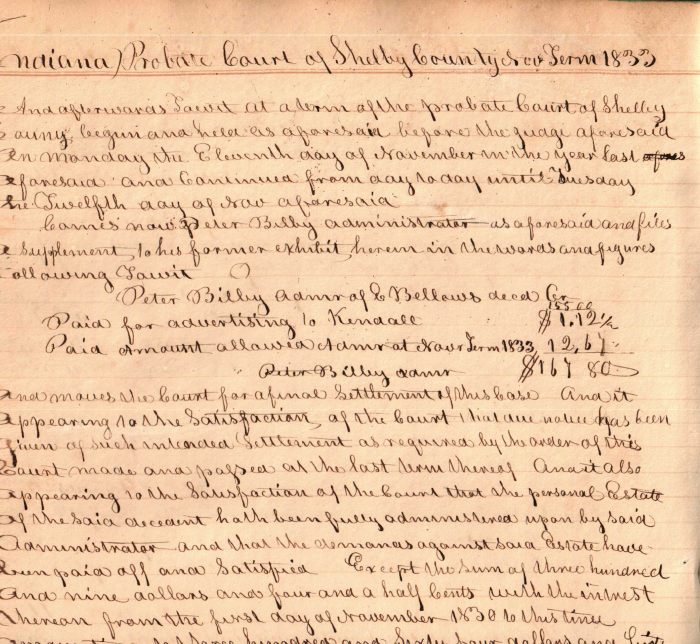 ndiana) Probate Court of Shelby County Nov Term 1833
And afterwards Towit at a term of the probate Court of Shelby
ouny, begun and held as aforesaid before the judge aforesaid
on Monday the Eleventh day of November in the year last afores
aforesaid and Continued from day to day until Tuesday
he Twelfth day of Nov aforesaid
Comes now Peter Bilby administrator as aforesaid and files
a Supplement to his former exhibit herein in the words and figures
ollowing Towit
Peter Bilby Admr of E Bellows decd Cr
155 00
Paid for advertising to Kendall $1.12½
Paid Amount allowed Admr at Nov Term 1833 12,67
Peter Bilby admr $167 80
And moves the Court for a final Settlement of this Case And it
appearing to the Satisfaction of the Court that due notice has been
given of such intended Settlement as required by the order of this
Court made and passed at the last term thereof And it also
appearing to the Satisfaction of the Court that the personal Estate
of the said decedent hath been fully administered upon by said
Administrator and that the demands against said Estate have
been paid off and Satisfied Except the sum of three hundred
and nine dollars and four and a half Cents with the intrest
thereon from the first day of November 1830 to this time
to three hundred and Sixty four dollars and